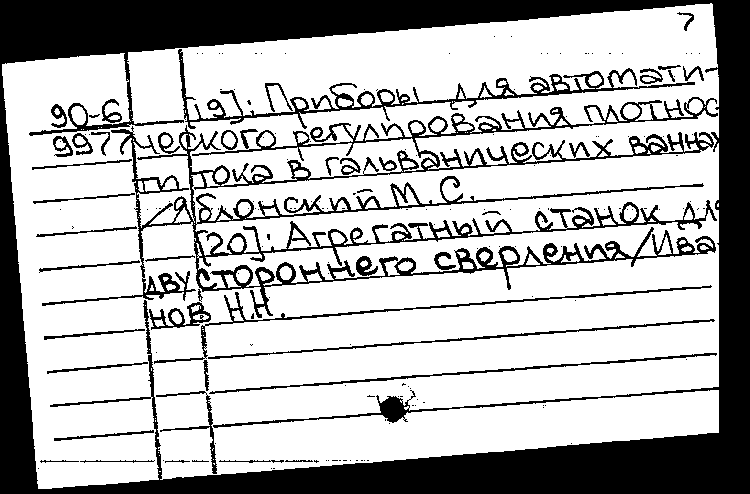 7
90-6 [19]: Приборы для автомати-
9977 ческого регулирования плотнос
ти тока в гальванических ваннах
/Яблонский М. С.
[20]: Агрегатный станок для
двустороннего сверления/Ива-
нов Н.Н.